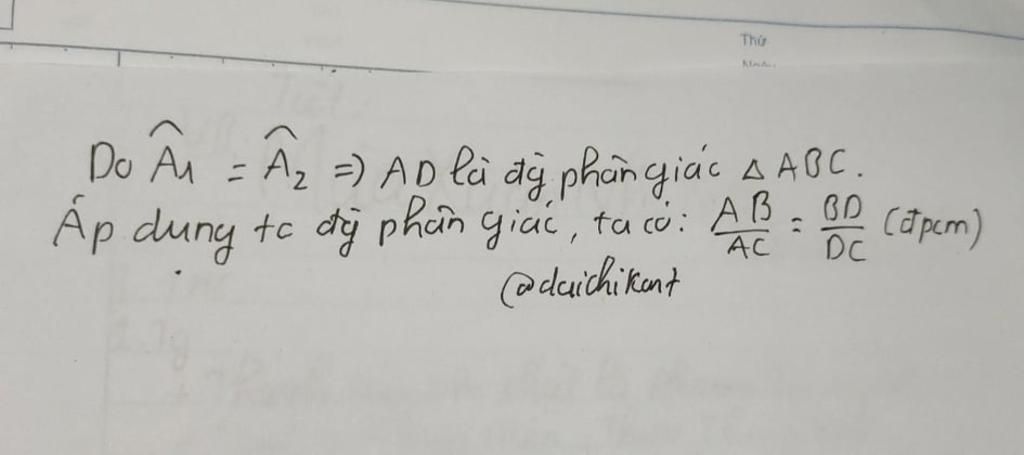 Thứ
Do Â1 = Â2 => AD là đg phân giác △ ABC.
Áp dụng tc đg phân giác, ta có: AB/AC = BD/DC (đpcm)
@daichikont